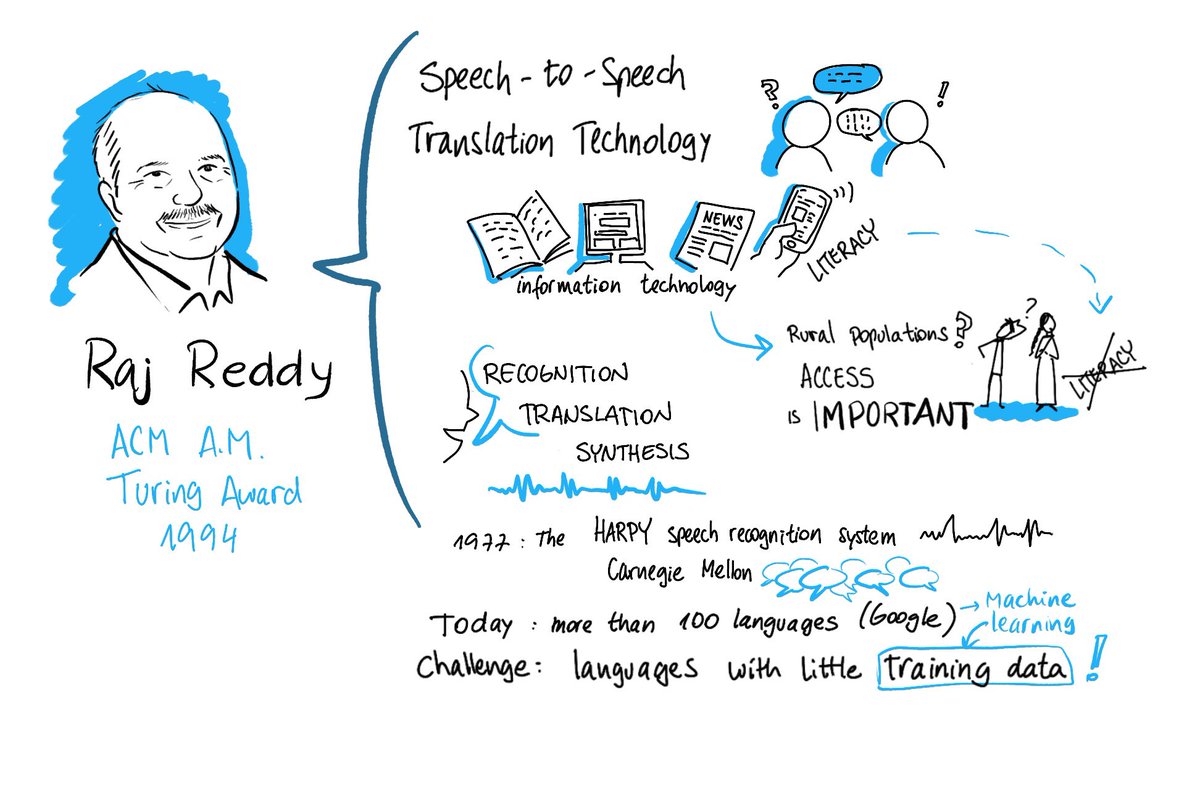 Raj Reddy
ACM A.M.
Turing Award
1994
Speech-to-Speech
Translation Technology
? !
NEWS
LITERACY
information technology
Rural Populations?
ACCESS
is IMPORTANT
?
LITERACY
RECOGNITION
TRANSLATION
SYNTHESIS
1977: The HARPY speech recognition system
Carnegie Mellon
Today: more than 100 languages (Google) → Machine
learning
Challenge: languages with little training data!